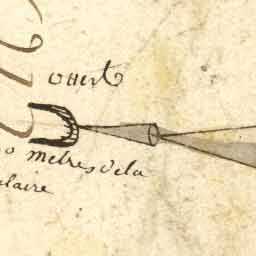 ouert
o metres de la
ulaire